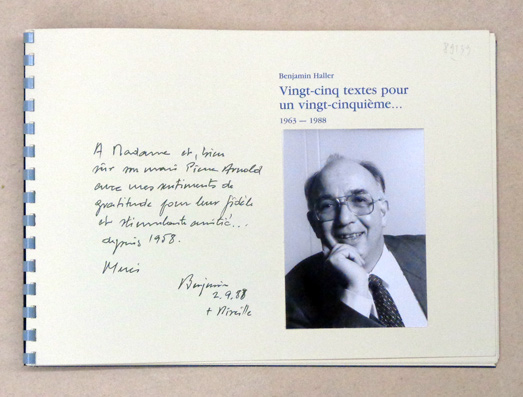 89139
Benjamin Haller
Vingt-cinq textes pour
un vingt-cinquième...
1963 — 1988
A Madame et, bien
sûr mari Pierre Arnold
avec mes sentiments de
gratitude pour leur fidèle
et stimulante amitié...
depuis 1958.
Merci
Benjamin
2.9.88
+ Mireille